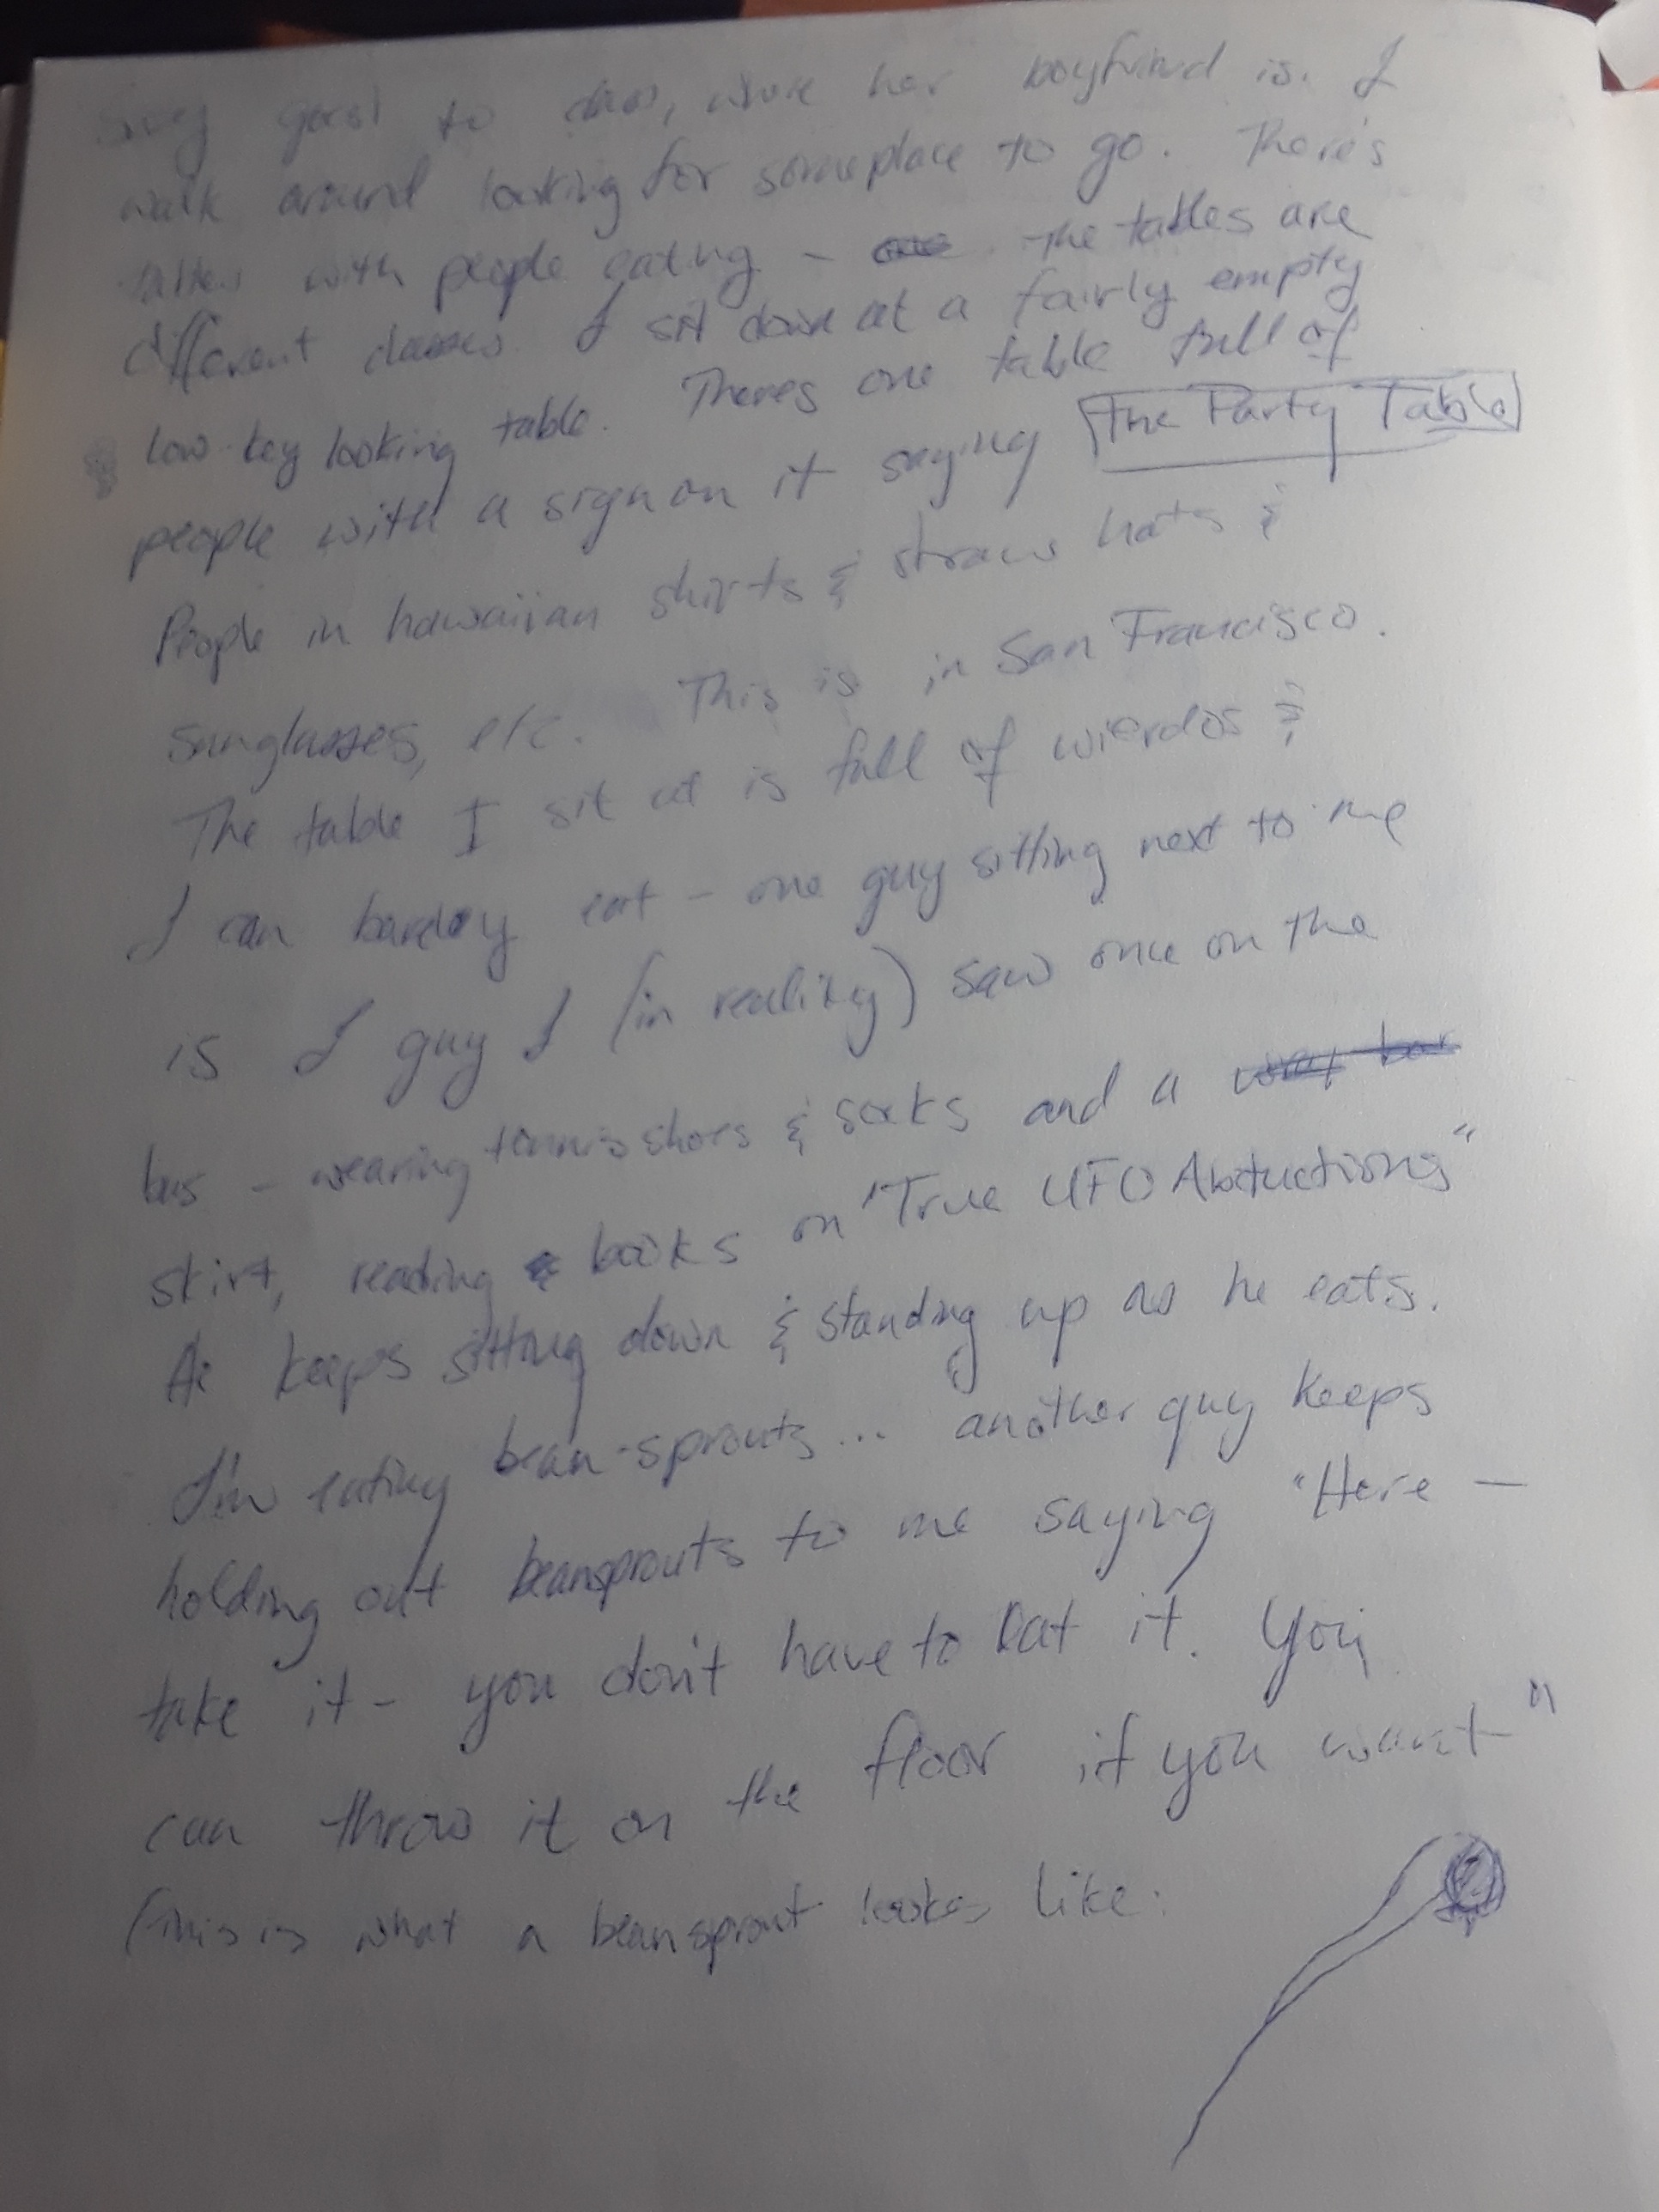 goes to class, where her boyfriend is. I
walk around looking for someplace to go. There's
tables with people eating - the tables are
different classes I sit down at a fairly empty
low-key looking table. Theres one table full of
people with a sign on it saying The Party Table
People in hawaiian shirts & straw hats &
sunglasses, etc. This is in San Francisco.
The table I sit at is full of wierdos &
I can barely eat - one guy sitting next to me
is I guy I (in reality) saw once on the
bus - wearing tennis shoes & socks and a
skirt, reading books on "True UFO Abductions"
He keeps sitting down & standing up as he eats.
I'm eating bean-sprouts... another guy keeps
holding out beansprouts to me saying "Here -
take it - you don't have to eat it. You
can throw it on the floor if you want"
(This is what a beansprout looks like: